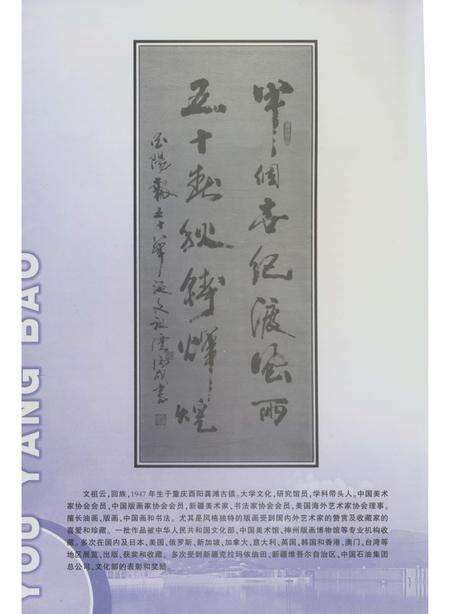 半个世纪渡风雨
五十春秋铸辉煌
酉阳报五十年 文祖云 书
YOU YANG BAO
文祖云,回族,1947年生于重庆酉阳龚滩古镇。大学文化,研究馆员,学科带头人。中国美术
家协会会员,中国版画家协会会员,新疆美术家、书法家协会会员,美国海外艺术家协会理事。
擅长油画,版画,中国画和书法。尤其是风格独特的版画受到国内外艺术家的赞赏及收藏家的
喜爱和珍藏。一批作品被中华人民共和国文化部、中国美术馆、神州版画博物馆等专业机构收
藏。多次在国内及日本、美国、俄罗斯、新加坡、加拿大、意大利、英国、韩国和香港、澳门、台湾等
地区展览、出版、获奖和收藏。多次受到新疆克拉玛依油田、新疆维吾尔自治区、中国石油集团
总公司、文化部的表彰和奖励。